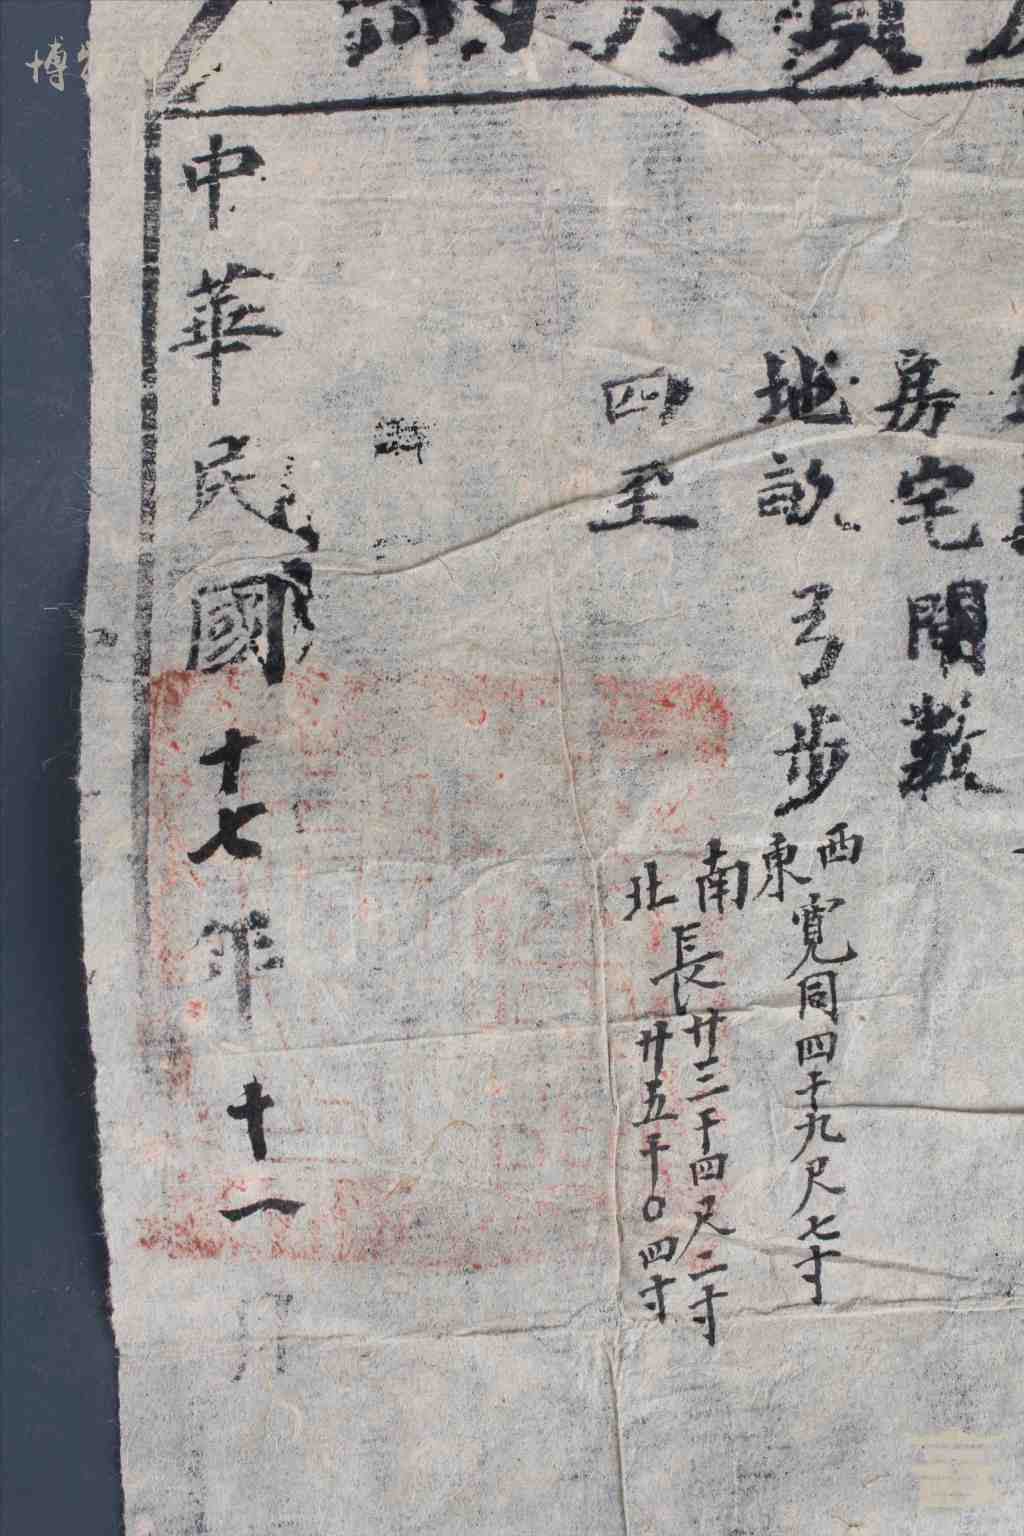 房宅間數
地畝弓步
西東寬同四十九尺七寸
南北長
廿三干四尺二寸
廿五干〇四寸
四至
中華民國十七年十一月